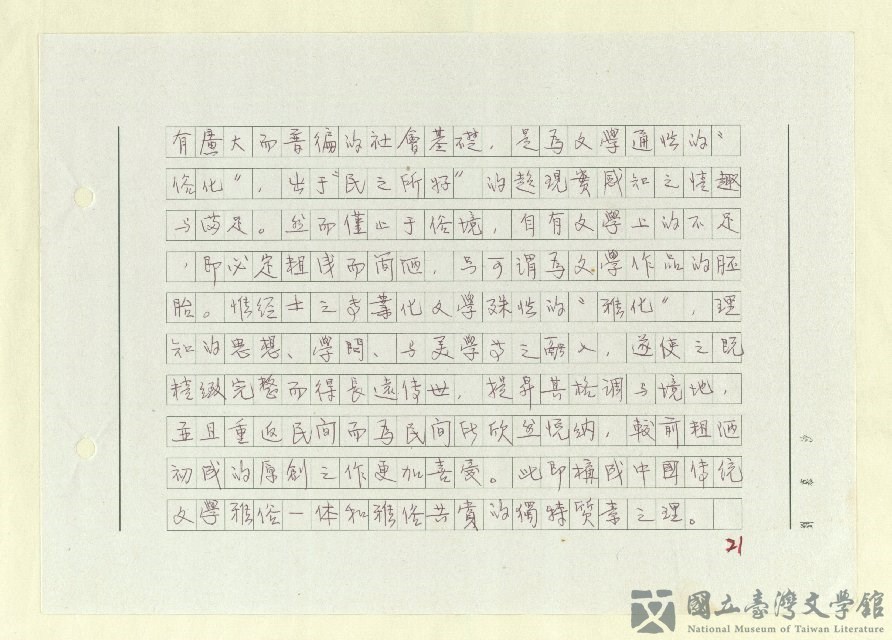 有廣大而普徧的社會基礎，是為文學通性的〝
俗化〞，出于〝民之所好〞的超現實感知之情趣
与滿足。然而僅止于俗境，自有文學上的不足
，即必定粗浅而简陋，与可謂為文學作品的胚
胎。惟经士之專業化文學殊性的〝雅化〞，理
知的思想、學問、与美學等之融入，遂使之既
精緻完整而得長遠傳世，提昇其格调与境地，
並且重返民间而為民间所欣然悦纳，較前粗陋
初成的原創之作更加喜愛。此即構成中國傳統
文學雅俗一体和雅俗共賞的獨特質素之理。
21
國立臺灣文學館
National Museum of Taiwan Literature